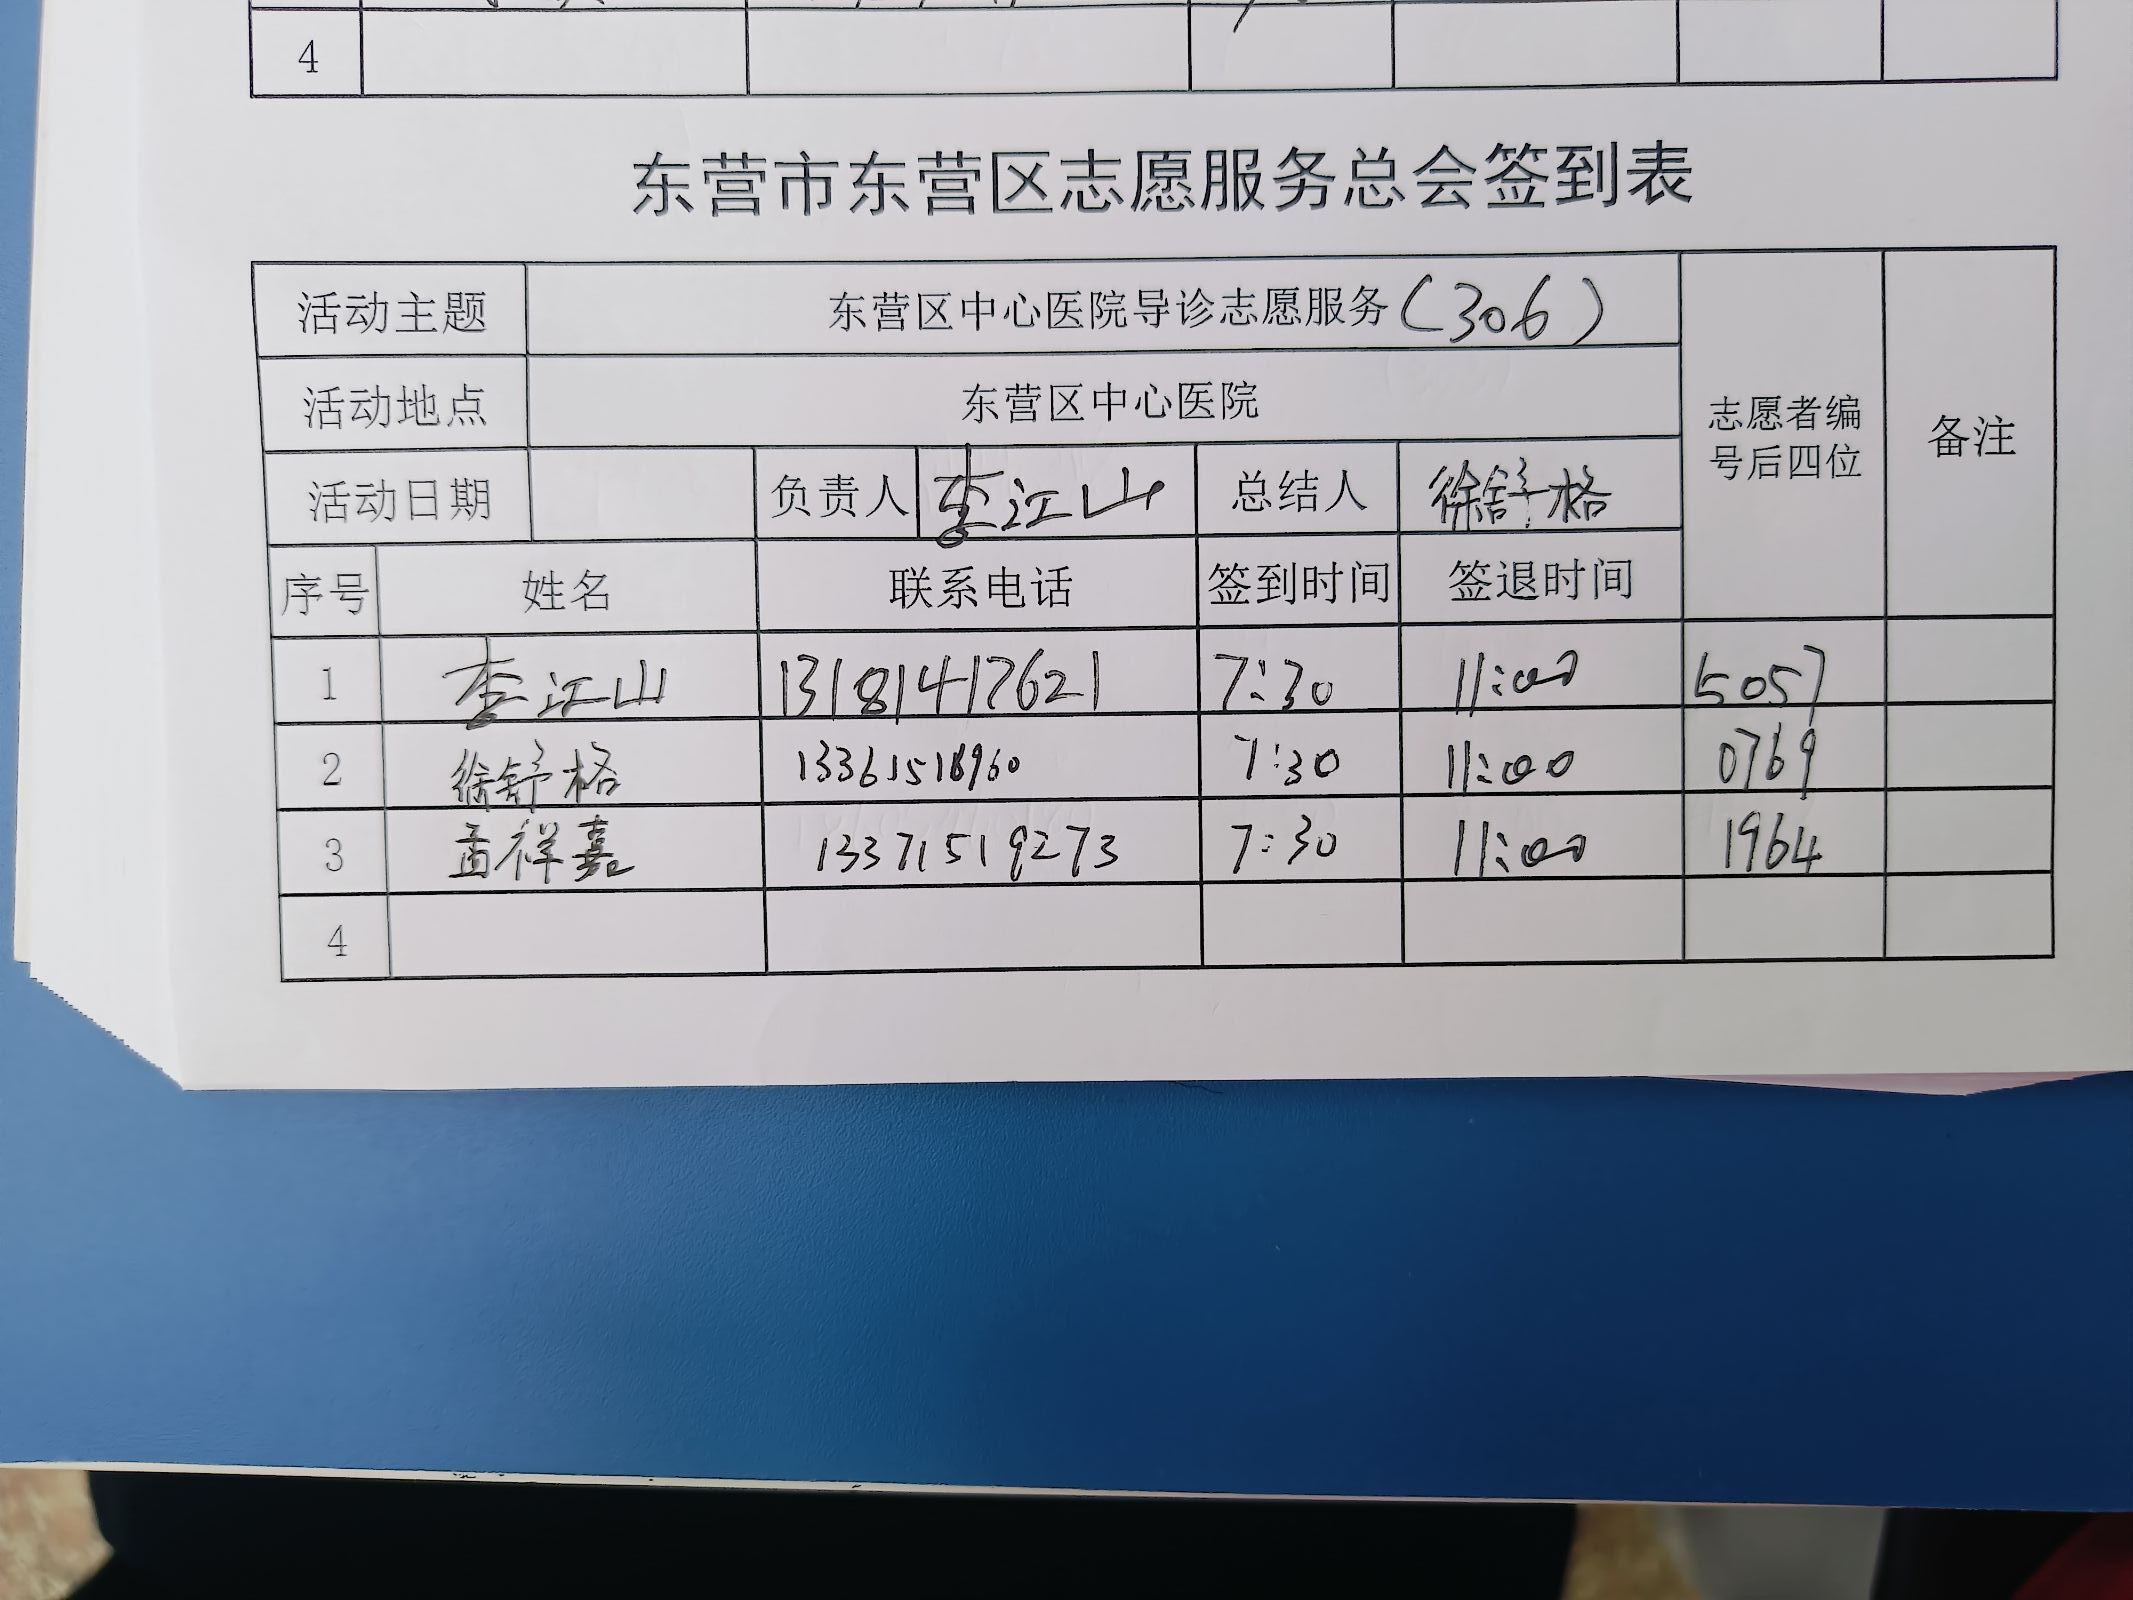 4
东营市东营区志愿服务总会签到表
活动主题 东营区中心医院导诊志愿服务(306)
活动地点 东营区中心医院
志愿者编号后四位 备注
活动日期 负责人 李江山 总结人 徐舒格
序号 姓名 联系电话 签到时间 签退时间
1 李江山 13181417621 7:30 11:00 5057
2 徐舒格 13361518960 7:30 11:00 0769
3 孟祥嘉 13371519273 7:30 11:00 1964
4